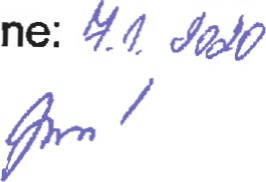 ne: 7.1. 2020